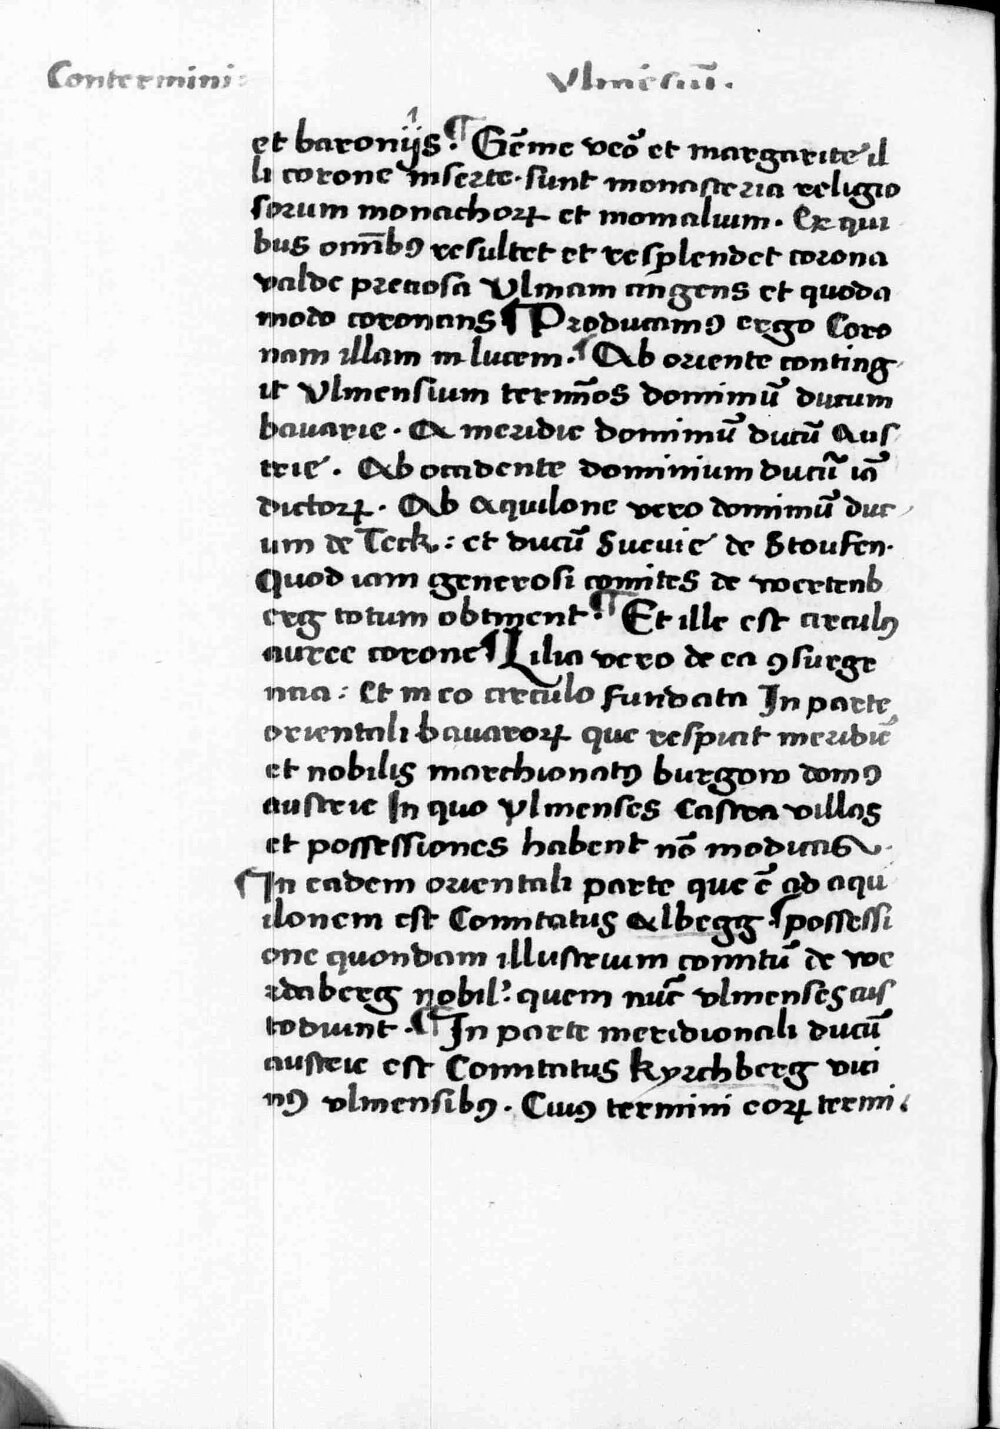 Contermini: Vlmēsiū̄.
et baronijs. ¶ Gēme veō et margarite il
li corone inserte. sunt monasteria religio
sorum monachoꝝ et monialium. Ex qui
bus omībꝰ resultet et resplendet corona
valde preciosa Vlmam cingens et quoda
modo coronans ¶ Producamꝰ ergo Coro
nam illam in lucem. ¶ Ab oriente conting
it Vlmensium termīos dominiū ducum
bavarie. A meridie dominiū ducū Aus
trie. Ab occidente dominium ducū iā
dictoꝝ. Ab Aquilone vero dominiū duc
um de Teck: et ducū Suevie de Stoufen.
Quod iam generosi comites de wertenb
erg totum obtinent. ¶ Et ille est circulꝰ
auree corone ¶ Lilia vero de ea ꝯsurge
ncia: Et in eo circulo fundata In parte
orientali bavaroꝝ que respicit meridiē
et nobilis marchionatꝰ burgow domꝰ
austrie In quo Vlmenses Castra villas
et possessiones habent nō modicas
¶ In eadem orientali parte que ē ad aqui
ilonem est Comitatus Albegg. possessi
one quondam illustrium comitū de we
rdaberg nobil. quem nūc vlmenses cus
todiunt. ¶ In parte meridionali ducū
austrie est Comitatus kyrchberg vici
nꝰ vlmensibꝰ. Cuiꝰ termini eoꝝ termi